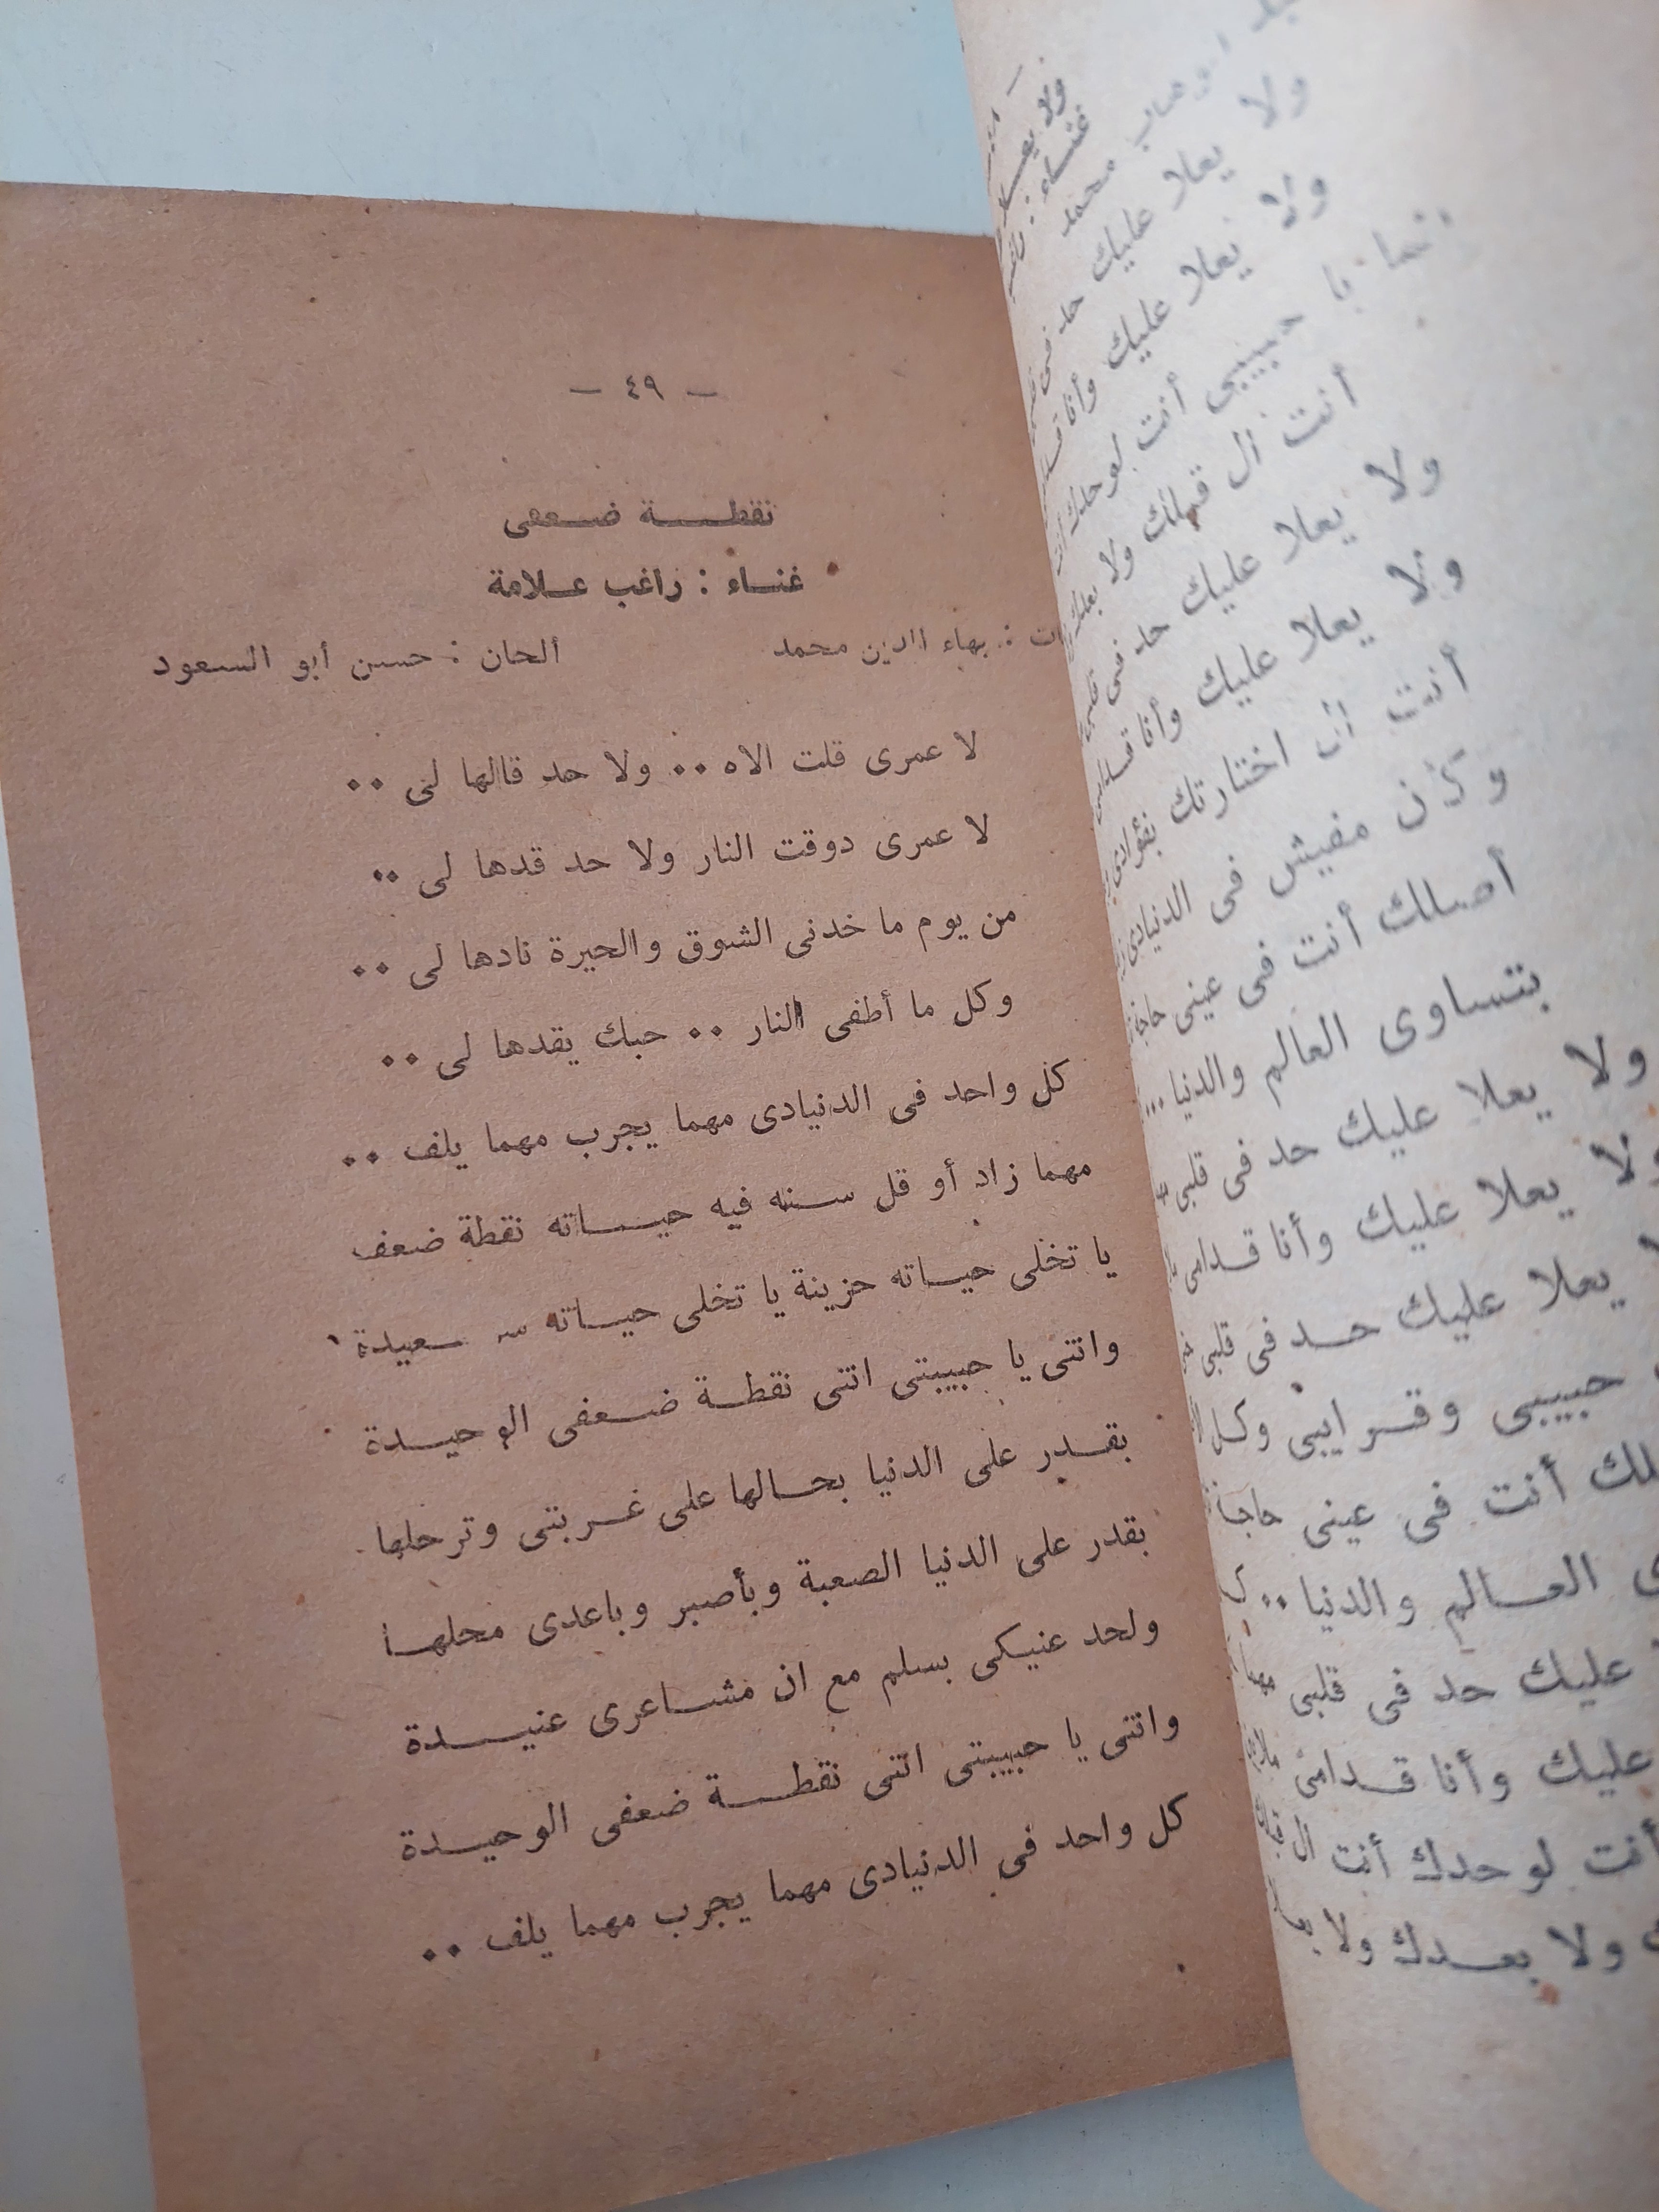 — ٤٩ —
نقطـــــة ضـــعفى
غنــاء : راغب عــلامة
ات : بهاء الدين محمد ألحان : حسن أبو السعود
لا عمرى قلت الاه ٠٠ ولا حد قالها لى ٠٠
لا عمرى دوقت النار ولا حد قدها لى ٠٠
من يوم ما خدنى الشوق والحيرة نادها لى ٠٠
وكل ما أطفى النار ٠٠ حبك يقدها لى ٠٠
كل واحد فى الدنيادى مهما يجرب مهما يلف ٠٠
مهما زاد أو قل سنه فيه حيــــاته نقطة ضعف
يا تخلى حيــاته حزينة يا تخلى حيــاته سـ ـــعيدة
وانتى يا حبيبتى انتى نقطــة ضــعفى الوحيـــدة
بقــدر على الدنيا بحــالها على غــربتى وترحلها
بقدر على الدنيا الصعبة وبأصبر وباعدى محلهــا
ولحد عنيكى بسلم مع ان مشــاعرى عنيـــدة
وانتى يا حبيبتى انتى نقطــــة ضعفى الوحيـــدة
كل واحد فى الدنيادى مهما يجرب مهما يلف ٠٠
ولا يعلا عليك حد فى
ولا يعلا عليك وأنا
يا حبيبى أنت لوحدك
أنت ال قبلك ولا بعدك
ولا يعلا عليك حد فى قلبى
ولا يعلا عليك وأنا
أنت ال اختارتك بفؤادى
وكأن مفيش فى الدنيادى
أصلك أنت فى عينى حاجة
بتساوى العالم والدنيا ...
ولا يعلا عليك حد فى قلبى
ولا يعلا عليك وأنا قــدامى
يعلا عليك حــد فى قلبى
حبيبى وقــرايبى وكل
أنت فى عينى حاجة
العــالم والدنيا ٠٠
عليك حد فى قلبى
عليك وأنا قــدامى
أنت لوحدك أنت ال
ولا بعــدك ولا